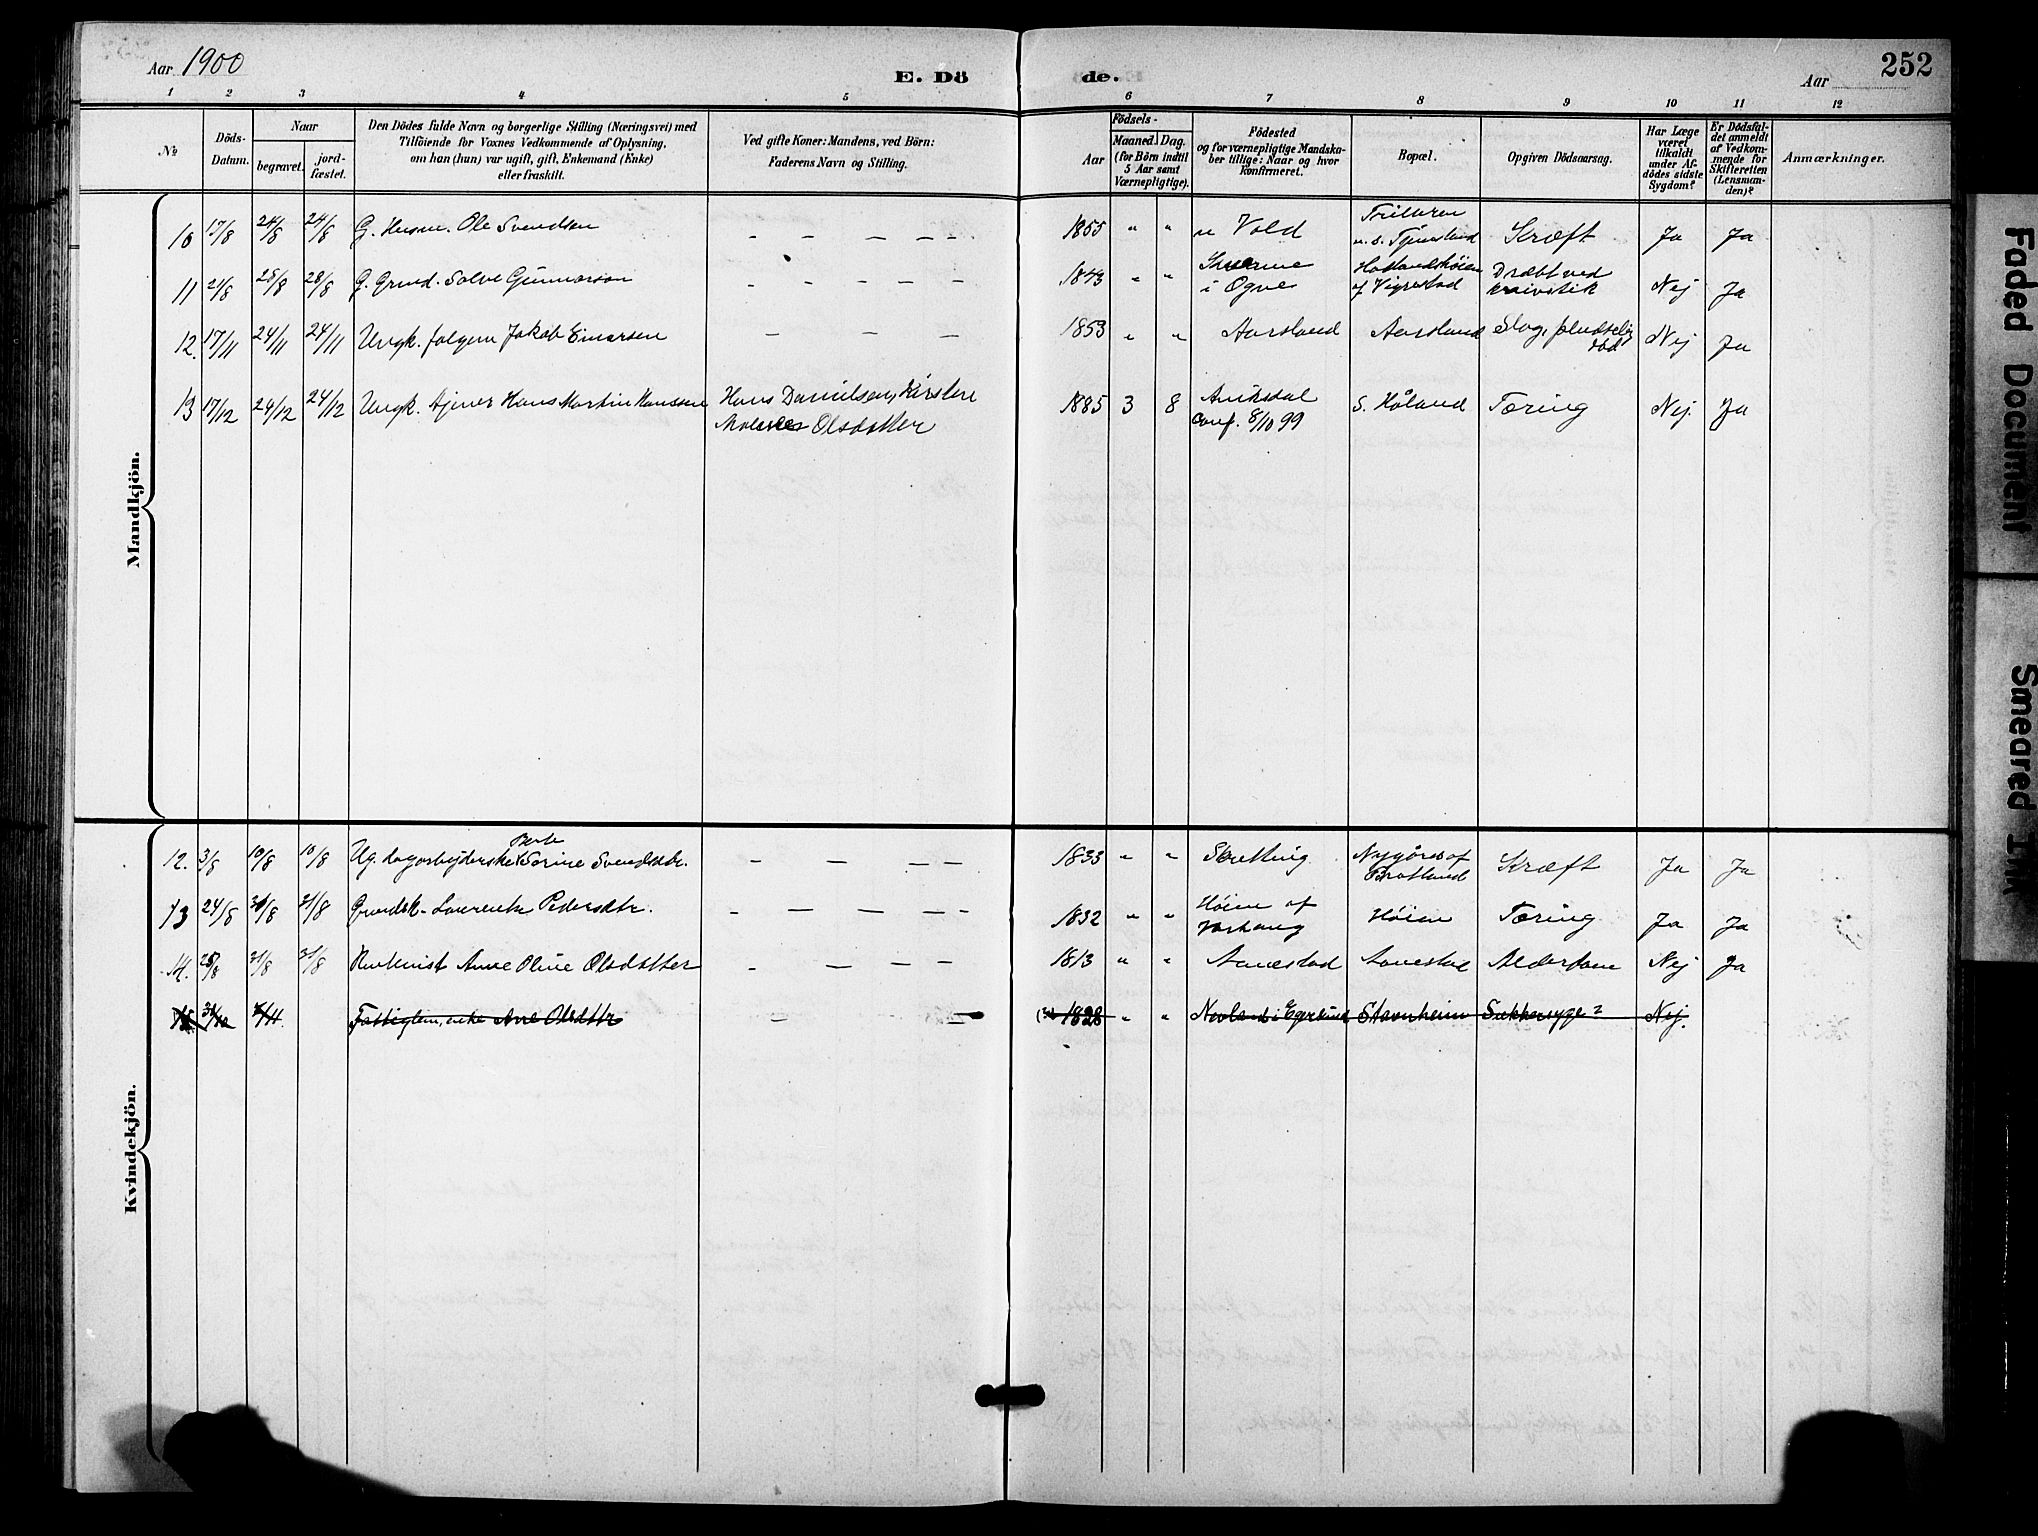 Aar 1900
E. Dö
de.
Aar
252
1 2 3 4 5 6 7 8 9 10 11 12
№
Döds-
Datum.
Naar
begravet.
jord-
fæstet.
Den Dödes fulde Navn og borgerlige Stilling (Næringsvei) med
Tilföiende for Voxnes Vedkommende af Oplysning,
om han (hun) var ugift, gift, Enkemand (Enke)
eller fraskilt.
Ved gifte Koner: Mandens, ved Börn:
Faderens Navn og Stilling.
Födsels-
Aar
Maaned. Dag.
(for Börn indtil
5 Aar samt
Værnepligtige).
Födested
og for værnepligtige Mandska-
ber tillige: Naar og hvor
konfirmeret.
Bopæl.
Opgiven Dödsaarsag.
Har Læge
været
tilkaldt
under Af-
dödes sidste
Sygdom?
Er Dödsfal-
det anmeldt
af Vedkom-
mende for
Skifteretten
(Lensman-
den)?
Anmærkninger.
Mandkjön.
10 17/8 24/8 24/8 G. Husm. Ole Svendsen - - - - - 1855 " " Vold Kræft Ja Ja
11 21/8 28/8 28/8 G. Grmd. Salve Gunnarson - - - - - 1843 " " i Ogne af Vigrestad Dræbt ved knivstik Nej Ja
12. 17/11 24/11 24/11 Ungk. Jakob Einarsen - - - 1853 " " Aarsland Aarsland Slag, pludselig død Nej Ja
13 17/12 24/12 24/12 Ungk. Hans Martin Hanssen Hans Danielsen, Kirstine
Olsdatter 1885 3 8 Auksdal
Conf. 8/10 99 S. Håland Tæring Nej. Ja
Kvindekjön.
12. 3/8 10/8 10/8 Ug. Berte Sorine Svendsdtr. - - - - 1833 " " Skretting Nygård af
Bratland Kræft Ja Ja
13 24/8 31/8 31/8 Laurentse Pedersdtr. - - - - 1832 " " Høien af
Varhaug Høien Tæring Ja Ja
14. 25/8 31/8 31/8 Anne Oline Olsdatter - - - - 1813 " " Aanestad Aanestad Alderdom Nej Ja
15 30/10 7/11. Fattiglem, enke Ane Olsdttr - - 1828 " " Nevland i Egersund Stavnheim Sukkersyge? Nej.
Faded Document
Smeared Ink